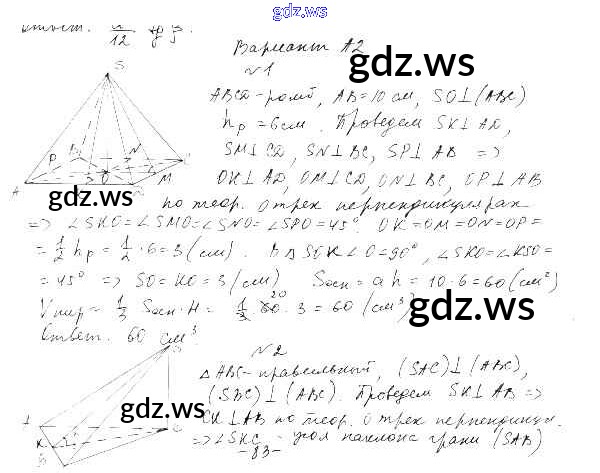 gdz.ws
Ответ. 12 tg β.
Вариант А2
gdz.ws
№1
ABCD - ромб, AB = 10 см, SO ⊥ (ABC)
hр = 6 см. Проведем SK ⊥ AD,
SM ⊥ CD, SN ⊥ BC, SP ⊥ AB =>
OK ⊥ AD, OM ⊥ CD, ON ⊥ BC, OP ⊥ AB
gdz.ws
по теор. о трех перпендикулярах
=> ∠SKO = ∠SMO = ∠SNO = ∠SPO = 45°. OK = OM = ON = OP =
= 1/2 hр = 1/2 · 6 = 3 (см). В △SOK ∠O = 90°, ∠SKO = ∠KSO =
= 45° => SO = KO = 3 (см) Sосн = a h = 10 · 6 = 60 (см²)
Vпир = 1/3 Sосн · H = 1/3 60 20 · 3 = 60 (см³)
gdz.ws
Ответ. 60 см³.
№2
△ABC - правильный, (SAC) ⊥ (ABC),
(SBC) ⊥ (ABC). Проведем SK ⊥ AB =>
gdz.ws
CK ⊥ AB по теор. о трех перпендикул.
=> ∠SKC - угол наклона грани (SAB)
- 83 -
S
P
B
N
C
A
O
M
K